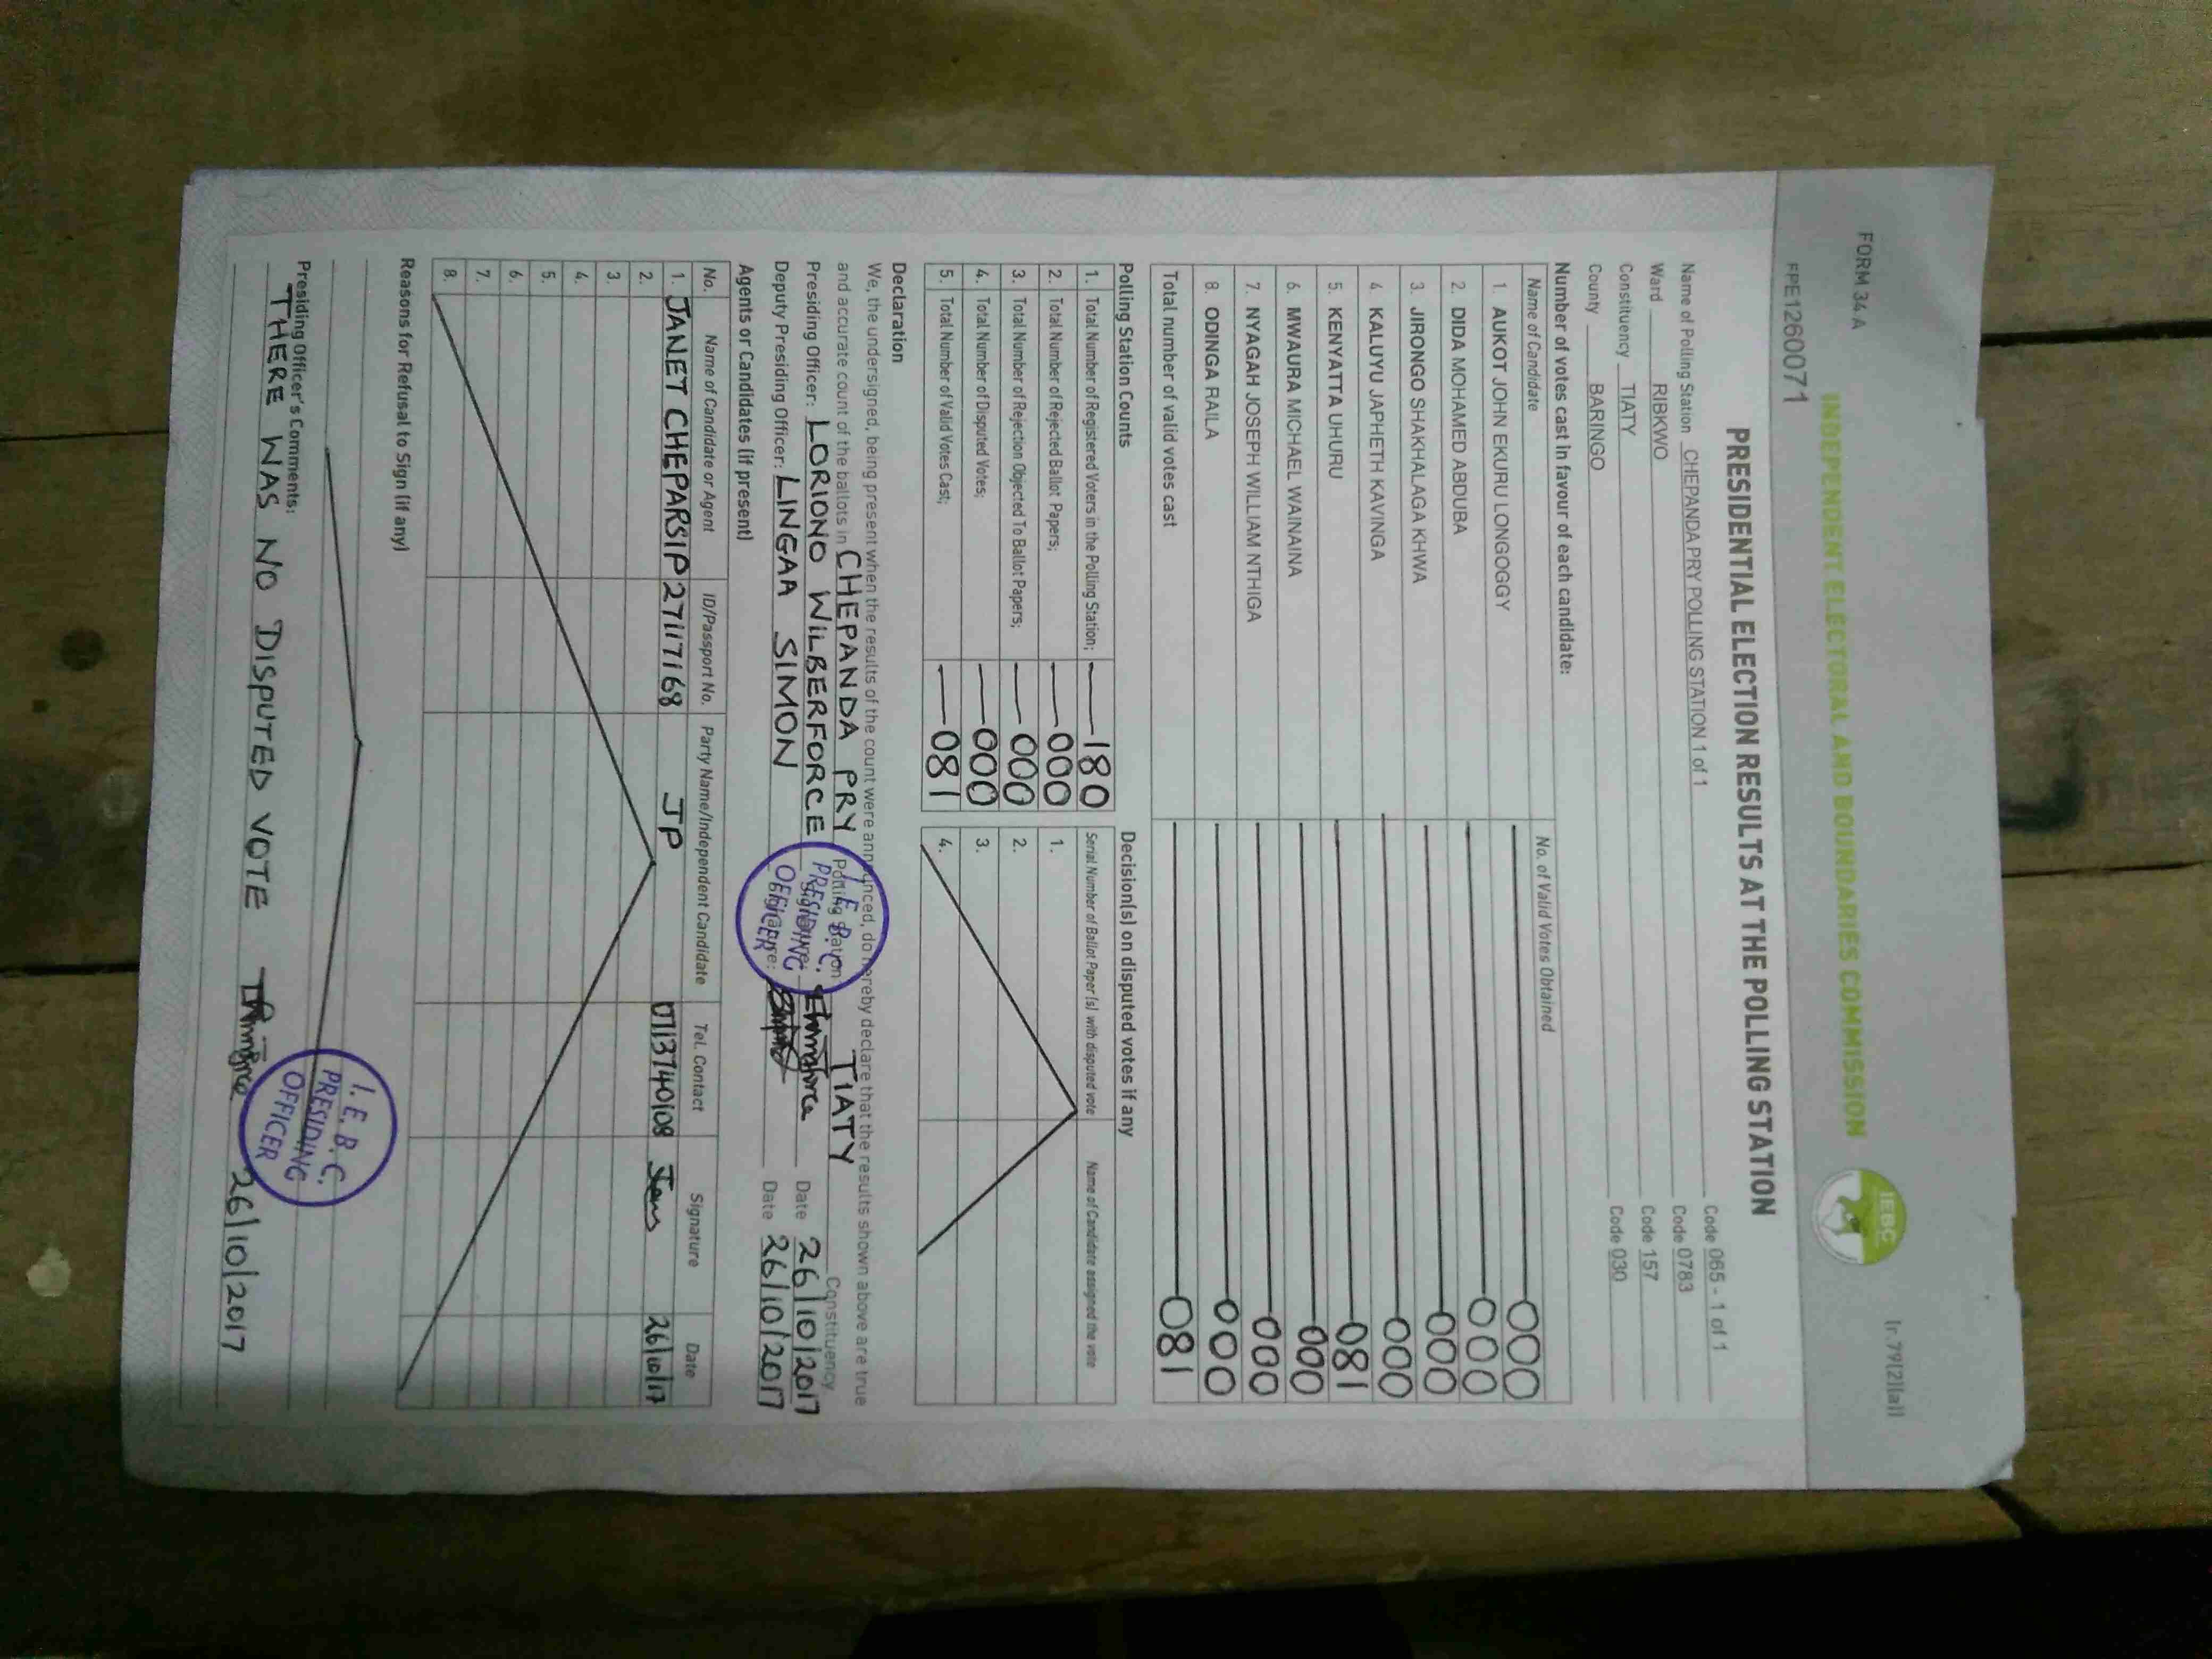 FORM 34 A
[r.79(2)(a)]
INDEPENDENT ELECTORAL AND BOUNDARIES COMMISSION
IEBC
FPE1260071
PRESIDENTIAL ELECTION RESULTS AT THE POLLING STATION
Name of Polling Station CHEPANDA PRY POLLING STATION 1 of 1 Code 065 - 1 of 1
Ward RIBKWO Code 0783
Constituency TIATY Code 157
County BARINGO Code 030
Number of votes cast in favour of each candidate:
Name of Candidate No. of Valid Votes Obtained
1. AUKOT JOHN EKURU LONGOGGY 000
2. DIDA MOHAMED ABDUBA 000
3. JIRONGO SHAKHALAGA KHWA 000
4. KALUYU JAPHETH KAVINGA 000
5. KENYATTA UHURU 081
6. MWAURA MICHAEL WAINAINA 000
7. NYAGAH JOSEPH WILLIAM NTHIGA 000
8. ODINGA RAILA 000
Total number of valid votes cast 081
Polling Station Counts
1. Total Number of Registered Voters in the Polling Station; 180
2. Total Number of Rejected Ballot Papers; 000
3. Total Number of Rejection Objected To Ballot Papers; 000
4. Total Number of Disputed Votes; 000
5. Total Number of Valid Votes Cast; 081
Decision(s) on disputed votes if any
Serial Number of Ballot Paper (s) with disputed vote Name of Candidate assigned the vote
1.
2.
3.
4.
Declaration
We, the undersigned, being present when the results of the count were announced, do hereby declare that the results shown above are true
and accurate count of the ballots in CHEPANDA PRY Polling Station TIATY Constituency
Presiding Officer: LORIONO WILBERFORCE Signature: Date 26/10/2017
Deputy Presiding Officer: LINGAA SIMON Signature: Date 26/10/2017
I.E.B.C.
PRESIDING
OFFICER
Agents or Candidates (if present)
No. Name of Candidate or Agent ID/Passport No. Party Name/Independent Candidate Tel. Contact Signature Date
1. JANET CHEPARSIP 27117168 JP 0713740108 26/10/17
2.
3.
4.
5.
6.
7.
8.
Reasons for Refusal to Sign (if any)
Presiding Officer's Comments:
THERE WAS NO DISPUTED VOTE 26/10/2017
I.E.B.C.
PRESIDING
OFFICER